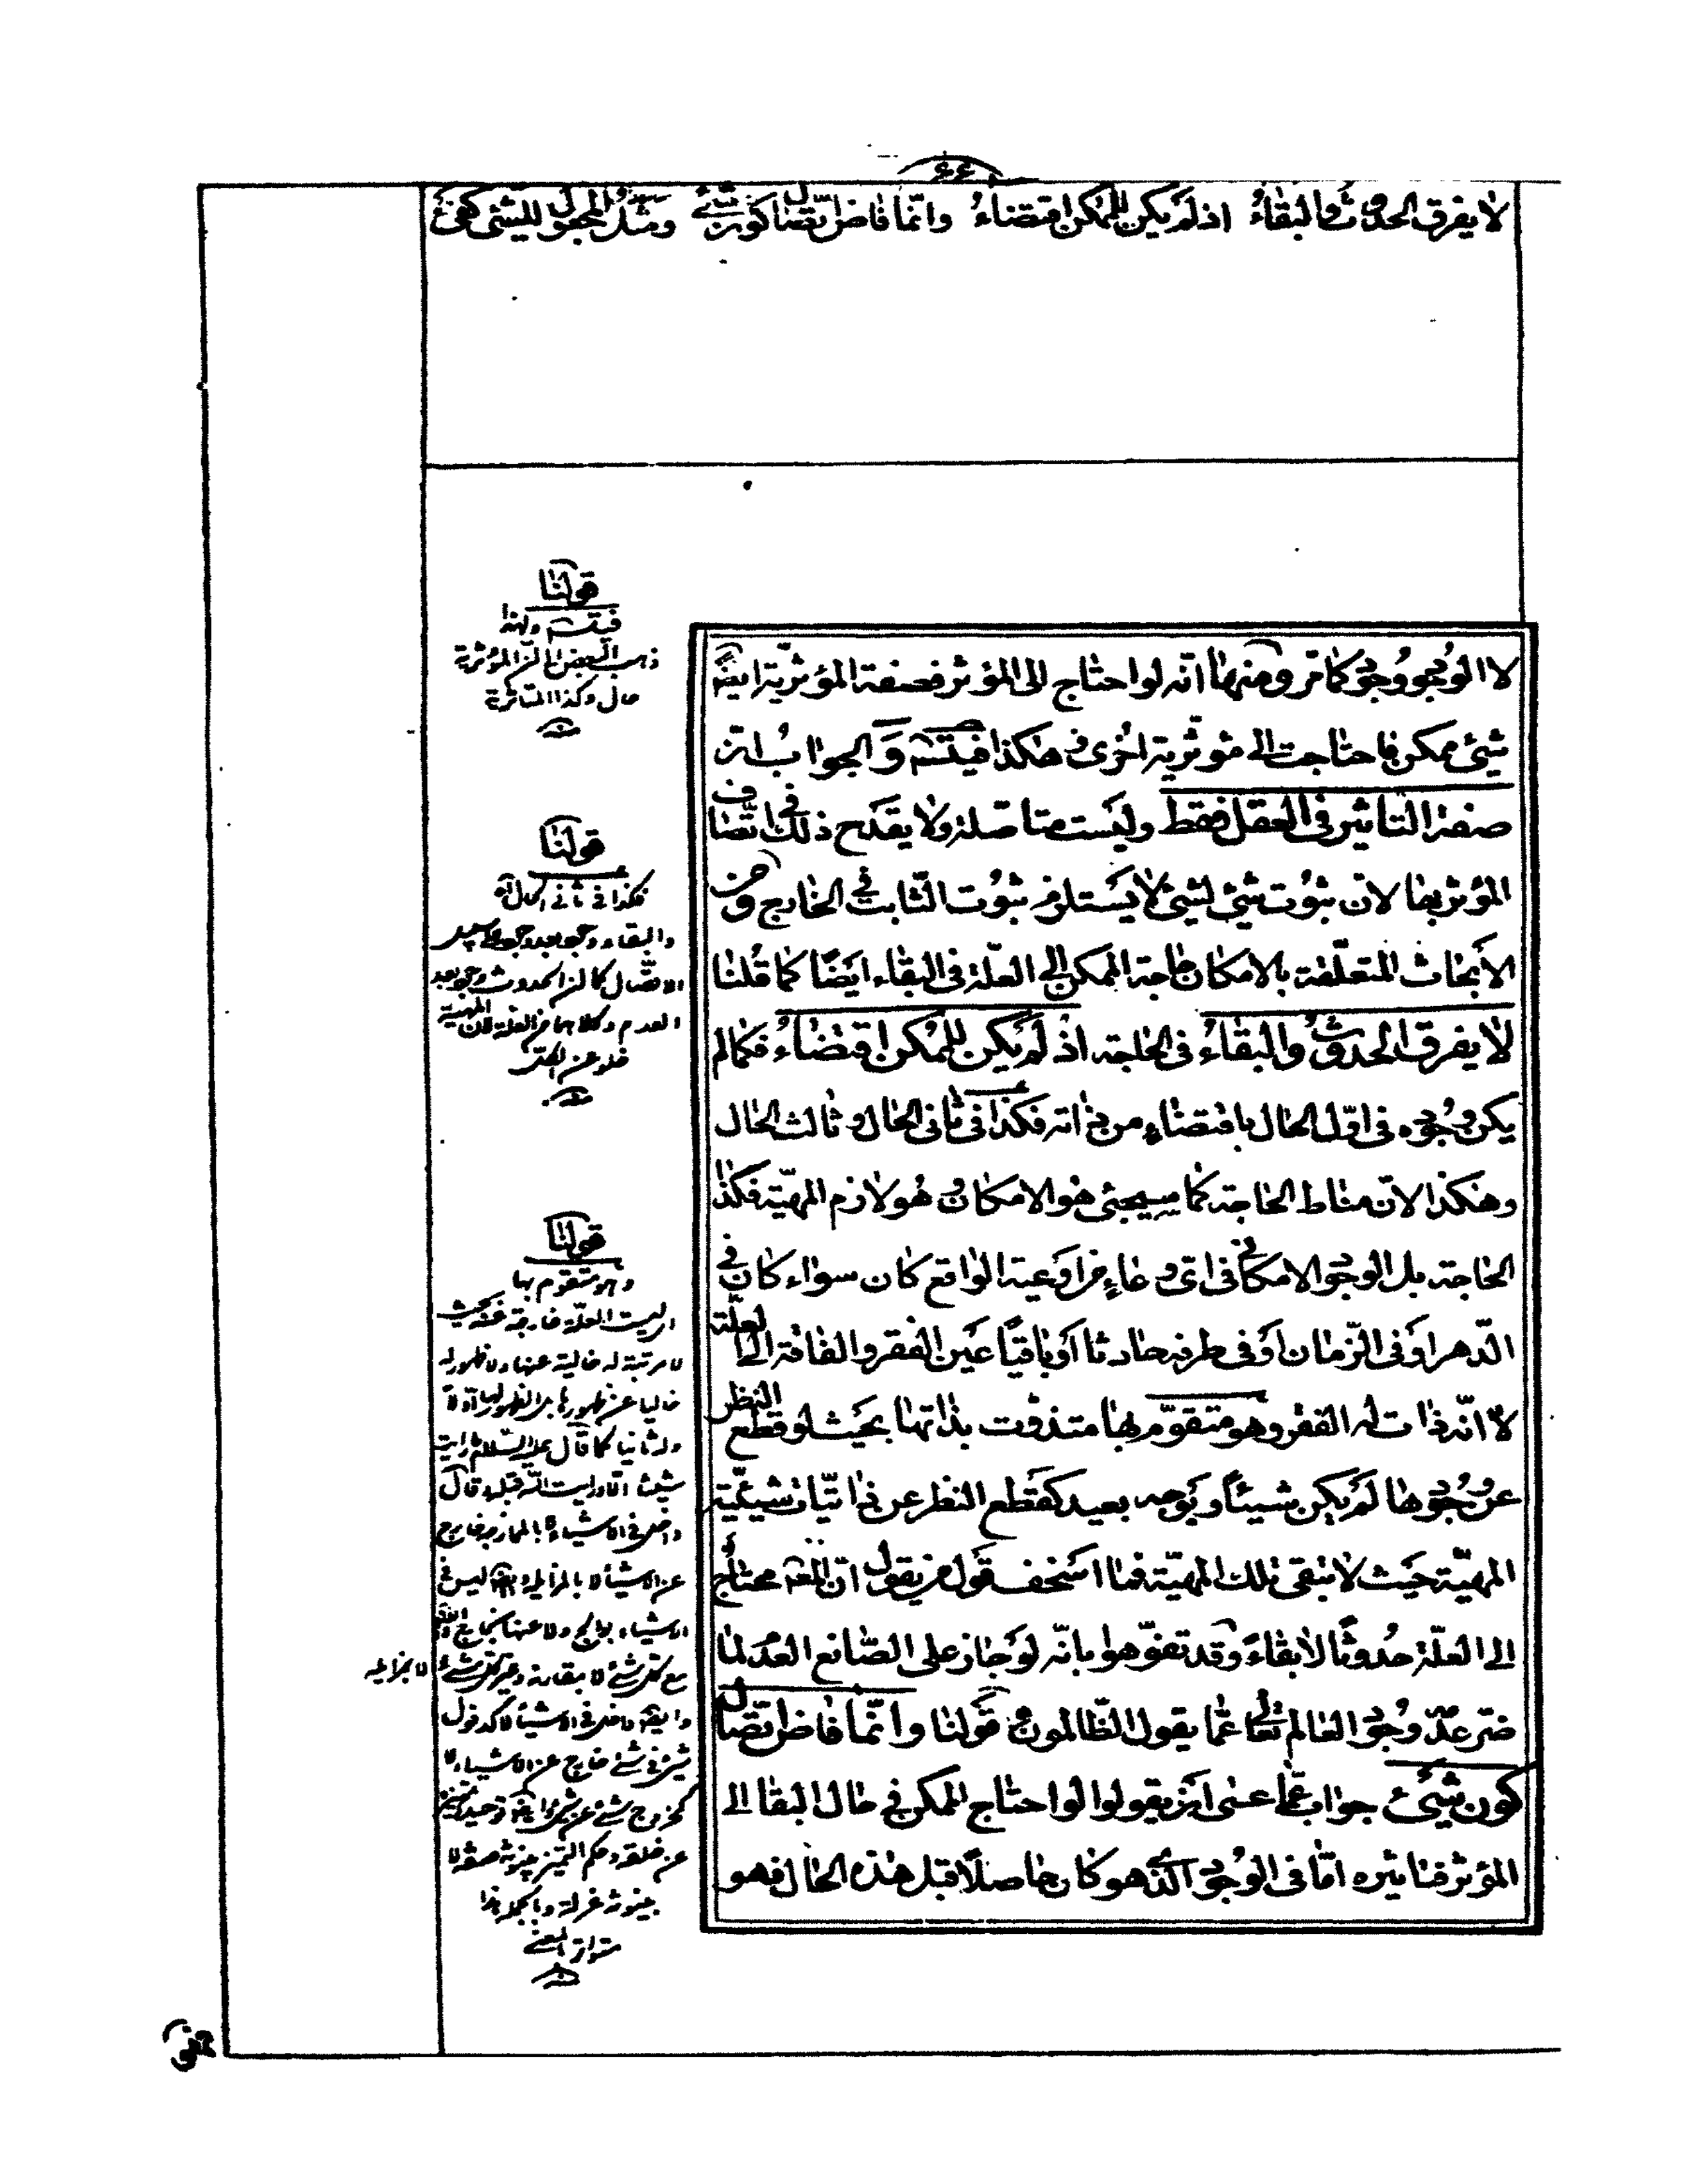 ٦٦
لا يفرق الحدوث والبقاء اذ لم يكن للممكن اقتضاء وانّما فاض اتّصال كون شيئ ومثل المجعول للشيئ كفيئ
لا الوجود وجود كما مرّ ومنها انّه لو احتاج الى المؤثر فصفة المؤثريّة ايضا
شيئ ممكن فاحتاجت الى مؤثّرية اخرى وهكذا فيتسم والجواب انّ
صفة التاثير فى العقل فقط وليست متاصلة ولا يقدح ذلك فى اتّصاف
المؤثر بها لان ثبوت شيئ لشيئ لا يستلزم ثبوت الثّابت فى الخارج ومن
الأبحاث المتعلّقة بالامكان حاجة الممكن الى العلّة فى البقاء ايضًا كما قلنا
لا يفرق الحدوث والبقاء فى الحاجة اذ لم يكن للممكن اقتضاء فكما لم
يكن وجوده فى اوّل الحال باقتضاءٍ من ذاته فكذا فى ثانى الحال وثالث الحال
وهكذا لانّ مناط الحاجة كما سيجيئ هو الامكان وهو لازم المهيّة فكذا
الحاجة بل الوجود الامكانى فى اىّ وعاءٍ من اوعية الواقع كان سواء كان فى
الدّهر او فى الزّمان او فى طرفه حادثا او باقيًا عين الفقر والفاقة الى العلّة
لا انّه ذات له الفقر وهو متقوّم بها متذوّت بذاتها بحيث لو قطع النظر
عن وجودها لم يكن شيئاً وبوجه بعيد كقطع النظر عن ذاتيّات شيئيّة
المهيّة حيث لا تبقى تلك المهيّة فما اسخف قول من يقول انّ المع محتاج
الى العلّة حدوثًا لا بقاءً وقد تفوّهوا بانّه لو جاز على الصّانع العدم لما
ضرّ عدمه وجود العالم تعالى عمّا يقول الظّالمون وقولنا وانّما فاض اتّصال
كون شيئ جواب عمّا عسى ان يقولوا لو احتاج الممكن فى حال البقا الى
المؤثر فتاثيره امّا فى الوجود الّذى هو كان حاصلًا قبل هذه الحال فهو
قولنا
فيتسم ولهذا
ذهب البعض الى انّ المؤثرية
حال وكذا المتاثرية
قولنا
فكذا فى ثانى الحال
والبقاء وجود بعد وجود على سبيل
الاتّصال كما انّ الحدوث وجود بعد
العدم وكلاهما من العلّة لان المهيّة
خلو عن الكلّ
قولنا
وهو متقوم بها
اى ليست العلّة خارجة عنه بحيث
لا مرتبة له خالية عنها ولا ظهور له
خاليا عن ظهورها بل الظهور لها اولا
وله ثانيا كما قال عليه السّلام ما رايت
شيئا الّا ورايت اللّه قبله وقال
داخل فى الاشياء لا بالممازجة خارج
عن الاشياء لا بالمزايلة وايضا ليس فى
الاشياء بوالج ولا عنها بخارج
مع كلّ شئ لا بمقارنة وغير كلّ شئ لا بمزايلة
وايضا داخل فى الاشياء لا كدخول
شئ فى شئ خارج عن الاشياء لا
كخروج شئ عن شئ وايضا توحيده تمييزه
عن خلقه وحكم التمييز بينونة صفة لا
بينونة عزلة وبالجملة هذا
متواتر المعنى